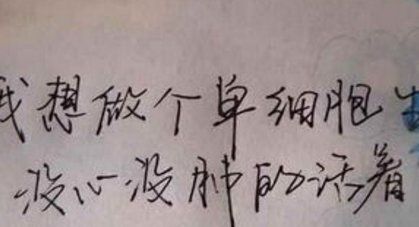 我想做个单细胞生
没心没肺的活着